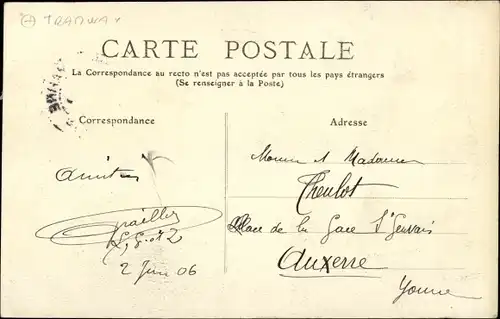 TRAMWAY
CARTE POSTALE
La Correspondance au recto n'est pas acceptée par tous les pays étrangers
(Se renseigner à la Poste)
Correspondance
Adresse
Monsieur & Madame
Theulot
Place de la Gare St Gervais
Auxerre
Yonne
2 Juin 06